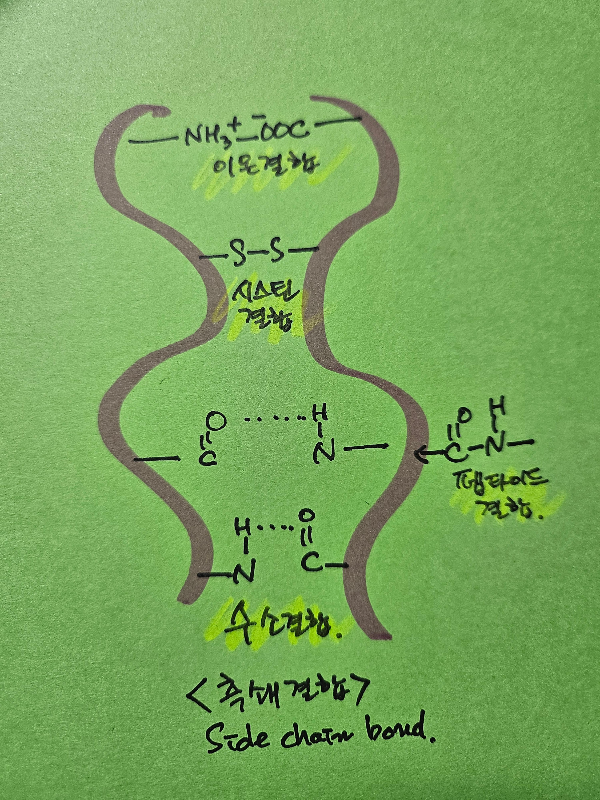 NH₃⁺ ⁻OOC
이온결합
S-S
시스틴
결합
O ····· H
C N
O H
C-N
펩타이드
결합.
H ···· O
N C
수소결합.
<측쇄결합>
Side chain bond.